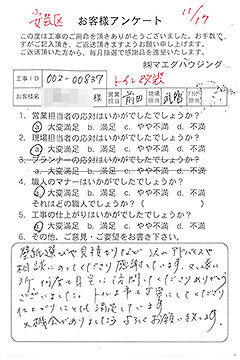 安芸区 お客様アンケート 11/17
この度は工事のご用命を頂きありがとうございました。お手数で
すがご記入頂き、ご返送頂きますようお願い申し上げます。
ご返送頂いた方から、毎月抽選で感謝品を進呈いたします。
㈱マエダハウジング
工事ID 002-00837 トイレ改装
お客様名 様 営業担当 前田 現場担当 武路
1. 営業担当者の応対はいかがでしたでしょうか?
a 大変満足 b. 満足 c. やや不満 d. 不満
2. 現場担当者の応対はいかがでしたでしょうか?
a 大変満足 b. 満足 c. やや不満 d. 不満
3. プランナーの応対はいかがでしたでしょうか?
a. 大変満足 b. 満足 c. やや不満 d. 不満
4. 職人のマナーはいかがでしたでしょうか?
a 大変満足 b. 満足 c. やや不満 d. 不満
それはどの職人でしょうか? ( )
5. 工事の仕上がりはいかがでしたでしょうか?
a 大変満足 b. 満足 c. やや不満 d. 不満
6. その他、ご意見・ご要望をお書き下さい。
壁紙選びや見積りなど
相談にのってくださり感謝しています。又、遠い
所 何度も自宅に訪問してくださりありがとう
ございました。トイレ工事も丁寧にしてくださり
仕上がりにも満足しています。
又機会がありましたら よろしくお願い致します。